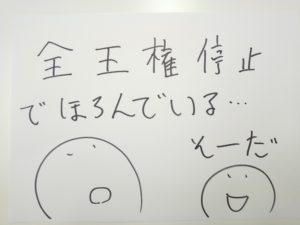 全王権停止
でほろんでいる…
そーだ